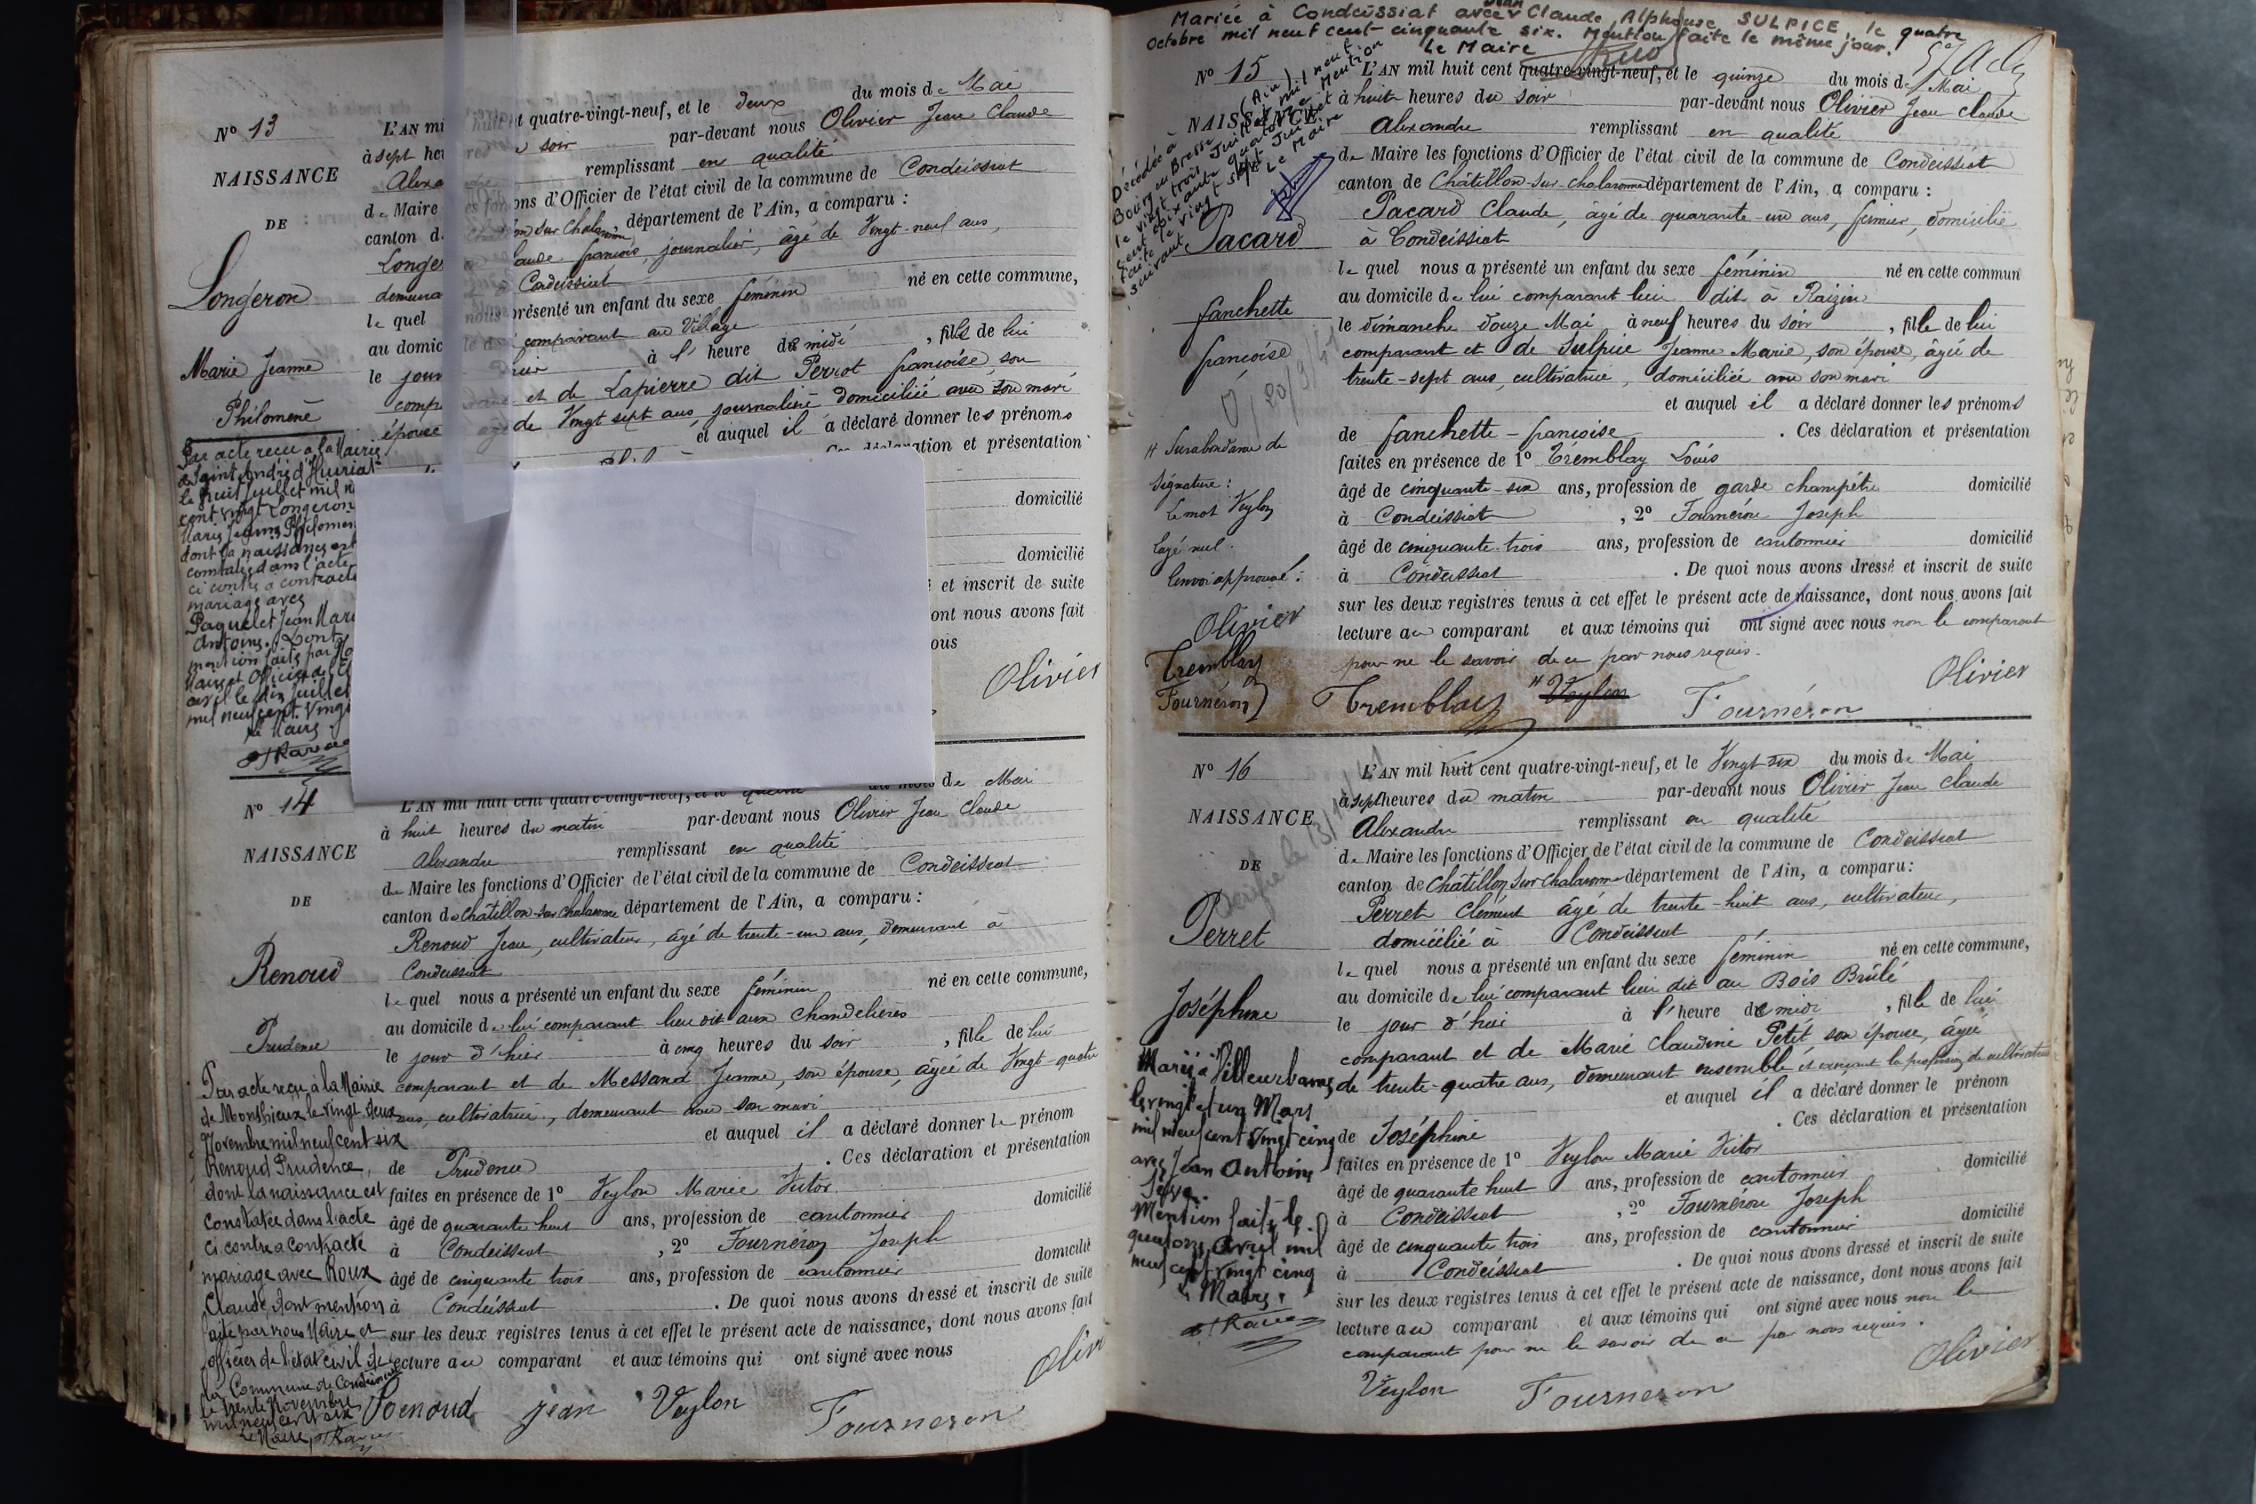 No 13
NAISSANCE
DE
Longeron
Marie Jeanne
Philomène
L'AN mil huit cent quatre-vingt-neuf, et le deux du mois de Mai
à sept heures du soir par-devant nous Olivier Jean Claude
Alexandre remplissant en qualité
de Maire les fonctions d'Officier de l'état civil de la commune de Condeissiat
canton de Châtillon sur Chalaronne, département de l'Ain, a comparu :
Longeron Claude françois, journalier, âgé de Vingt-neuf ans,
demeurant à Condeissiat
le quel nous a présenté un enfant du sexe féminin né en cette commune,
au domicile de lui comparant au Village
le jour d'hier à l' heure de midi , fille de lui
comparant et de Lapierre dit Perrot françoise, son
épouse âgée de Vingt sept ans journalière domiciliée avec son mari
et auquel il a déclaré donner les prénoms
Ces déclaration et présentation
domicilié
domicilié
et inscrit de suite
ont nous avons fait
ous
Olivier
Par acte reçu à la Mairie
de Saint André d'Huriat
le huit Juillet mil n
cent vingt Longeron
Marie Jeanne Philomène
dont la naissance est
constatée dans l'acte
ci contre a contracté
mariage avec
Paquelet Jean Marie
Antoine. Dont
mention faite par No
Maire et Officier de l'é
civil le dix Juillet
mil neuf cent vingt
Le Maire
No 14
NAISSANCE
DE
Renoud
Prudence
L'AN mil huit cent quatre-vingt-neuf, et le quinze du mois de Mai
à huit heures du matin par-devant nous Olivier Jean Claude
Alexandre remplissant en qualité
de Maire les fonctions d'Officier de l'état civil de la commune de Condeissiat
canton de Châtillon-sur-Chalaronne département de l'Ain, a comparu :
Renoud Jean, cultivateur, âgé de trente-un ans, demeurant à
Condeissiat
le quel nous a présenté un enfant du sexe féminin né en cette commune,
au domicile de lui comparant lieu dit aux Chandelières
le jour d'hier à cinq heures du soir , fille de lui
comparant et de Messand Jeanne, son épouse, âgée de Vingt-quatre
ans, cultivatrice, demeurant avec son mari
et auquel il a déclaré donner le prénom
de Prudence . Ces déclaration et présentation
faites en présence de 1o Veylon Marie Victor
âgé de quarante huit ans, profession de cantonnier domicilié
à Condeissiat , 2o Fournéron Joseph
âgé de cinquante trois ans, profession de cantonnier domicilié
à Condeissiat . De quoi nous avons dressé et inscrit de suite
sur les deux registres tenus à cet effet le présent acte de naissance, dont nous avons fait
lecture au comparant et aux témoins qui ont signé avec nous
Renoud jean Veylon Fourneron Olivier
Par acte reçu à la Mairie
de Monthieux le vingt deux
Novembre mil neuf cent six
Renoud Prudence,
dont la naissance est
constatée dans l'acte
ci contre a contracté
mariage avec Roux
Claude, dont mention
faite par nous Maire et
officier de l'état civil de
la Commune de Condeissiat
le trente Novembre
mil neuf cent six
Le Maire
Mariée à Condeissiat avec Jean Claude, Alphonse SULPICE, le quatre
Octobre mil neuf cent cinquante six. Mention faite le même jour.
Le Maire
No 15
NAISSANCE
Décédée à
Bourg en Bresse (Ain)
le vingt trois Juillet mil neuf
cent soixante quatorze Mention
faite le vingt sept Juillet
suivant Le Maire
Pacard
fanchette
françoise
L'AN mil huit cent quatre-vingt-neuf, et le quinze du mois de Mai
à huit heures du soir par-devant nous Olivier Jean Claude
Alexandre remplissant en qualité
de Maire les fonctions d'Officier de l'état civil de la commune de Condeissiat
canton de Châtillon-sur-Chalaronne département de l'Ain, a comparu :
Pacard Claude, âgé de quarante-un ans, fermier, domicilié
à Condeissiat
le quel nous a présenté un enfant du sexe féminin né en cette commun
au domicile de lui comparant lieu dit à Raizin
le dimanche douze Mai à neuf heures du soir , fille de lui
comparant et de Sulpice Jeanne Marie, son épouse, âgée de
trente-sept ans, cultivatrice, domiciliée avec son mari
et auquel il a déclaré donner les prénoms
de fanchette-françoise . Ces déclaration et présentation
faites en présence de 1o Tremblay Louis
âgé de cinquante-six ans, profession de garde champêtre domicilié
à Condeissiat , 2o Fournéron Joseph
âgé de cinquante-trois ans, profession de cantonnier domicilié
à Condeissiat . De quoi nous avons dressé et inscrit de suite
sur les deux registres tenus à cet effet le présent acte de naissance, dont nous avons fait
lecture au comparant et aux témoins qui ont signé avec nous non le comparant
pour ne le savoir de ce par nous requis.
Tremblay Veylon Fournéron Olivier
Surabondance de
signature :
le mot Veylon
rayé nul.
Renvoi approuvé :
Olivier
Tremblay
Fournéron
No 16
NAISSANCE
DE
Perret
Joséphine
L'AN mil huit cent quatre-vingt-neuf, et le Vingt-six du mois de Mai
à sept heures du matin par-devant nous Olivier Jean Claude
Alexandre remplissant en qualité
de Maire les fonctions d'Officier de l'état civil de la commune de Condeissiat
canton de Châtillon sur Chalaronne département de l'Ain, a comparu :
Perret Clément âgé de trente-huit ans, cultivateur,
domicilié à Condeissiat
le quel nous a présenté un enfant du sexe féminin né en cette commune,
au domicile de lui comparant lieu dit au Bois Brûlé
le jour d'hier à l'heure de midi , fille de lui
comparant et de Marie Claudine Petit son épouse, âgée
de trente-quatre ans, demeurant ensemble et exerçant la profession de cultivateurs
et auquel il a déclaré donner le prénom
de Joséphine . Ces déclaration et présentation
faites en présence de 1o Veylon Marie Victor
âgé de quarante huit ans, profession de cantonnier domicilié
à Condeissiat , 2o Fournéron Joseph
âgé de cinquante trois ans, profession de cantonnier domicilié
à Condeissiat . De quoi nous avons dressé et inscrit de suite
sur les deux registres tenus à cet effet le présent acte de naissance, dont nous avons fait
lecture au comparant et aux témoins qui ont signé avec nous non le
comparant pour ne le savoir de ce par nous requis.
Veylon Fourneron Olivier
Mariée à Villeurbanne
le vingt et un Mars
mil neuf cent vingt cinq
avec Jean Antoine
Serve.
Mention faite le
quatorze Avril mil
neuf cent vingt cinq
Le Maire,